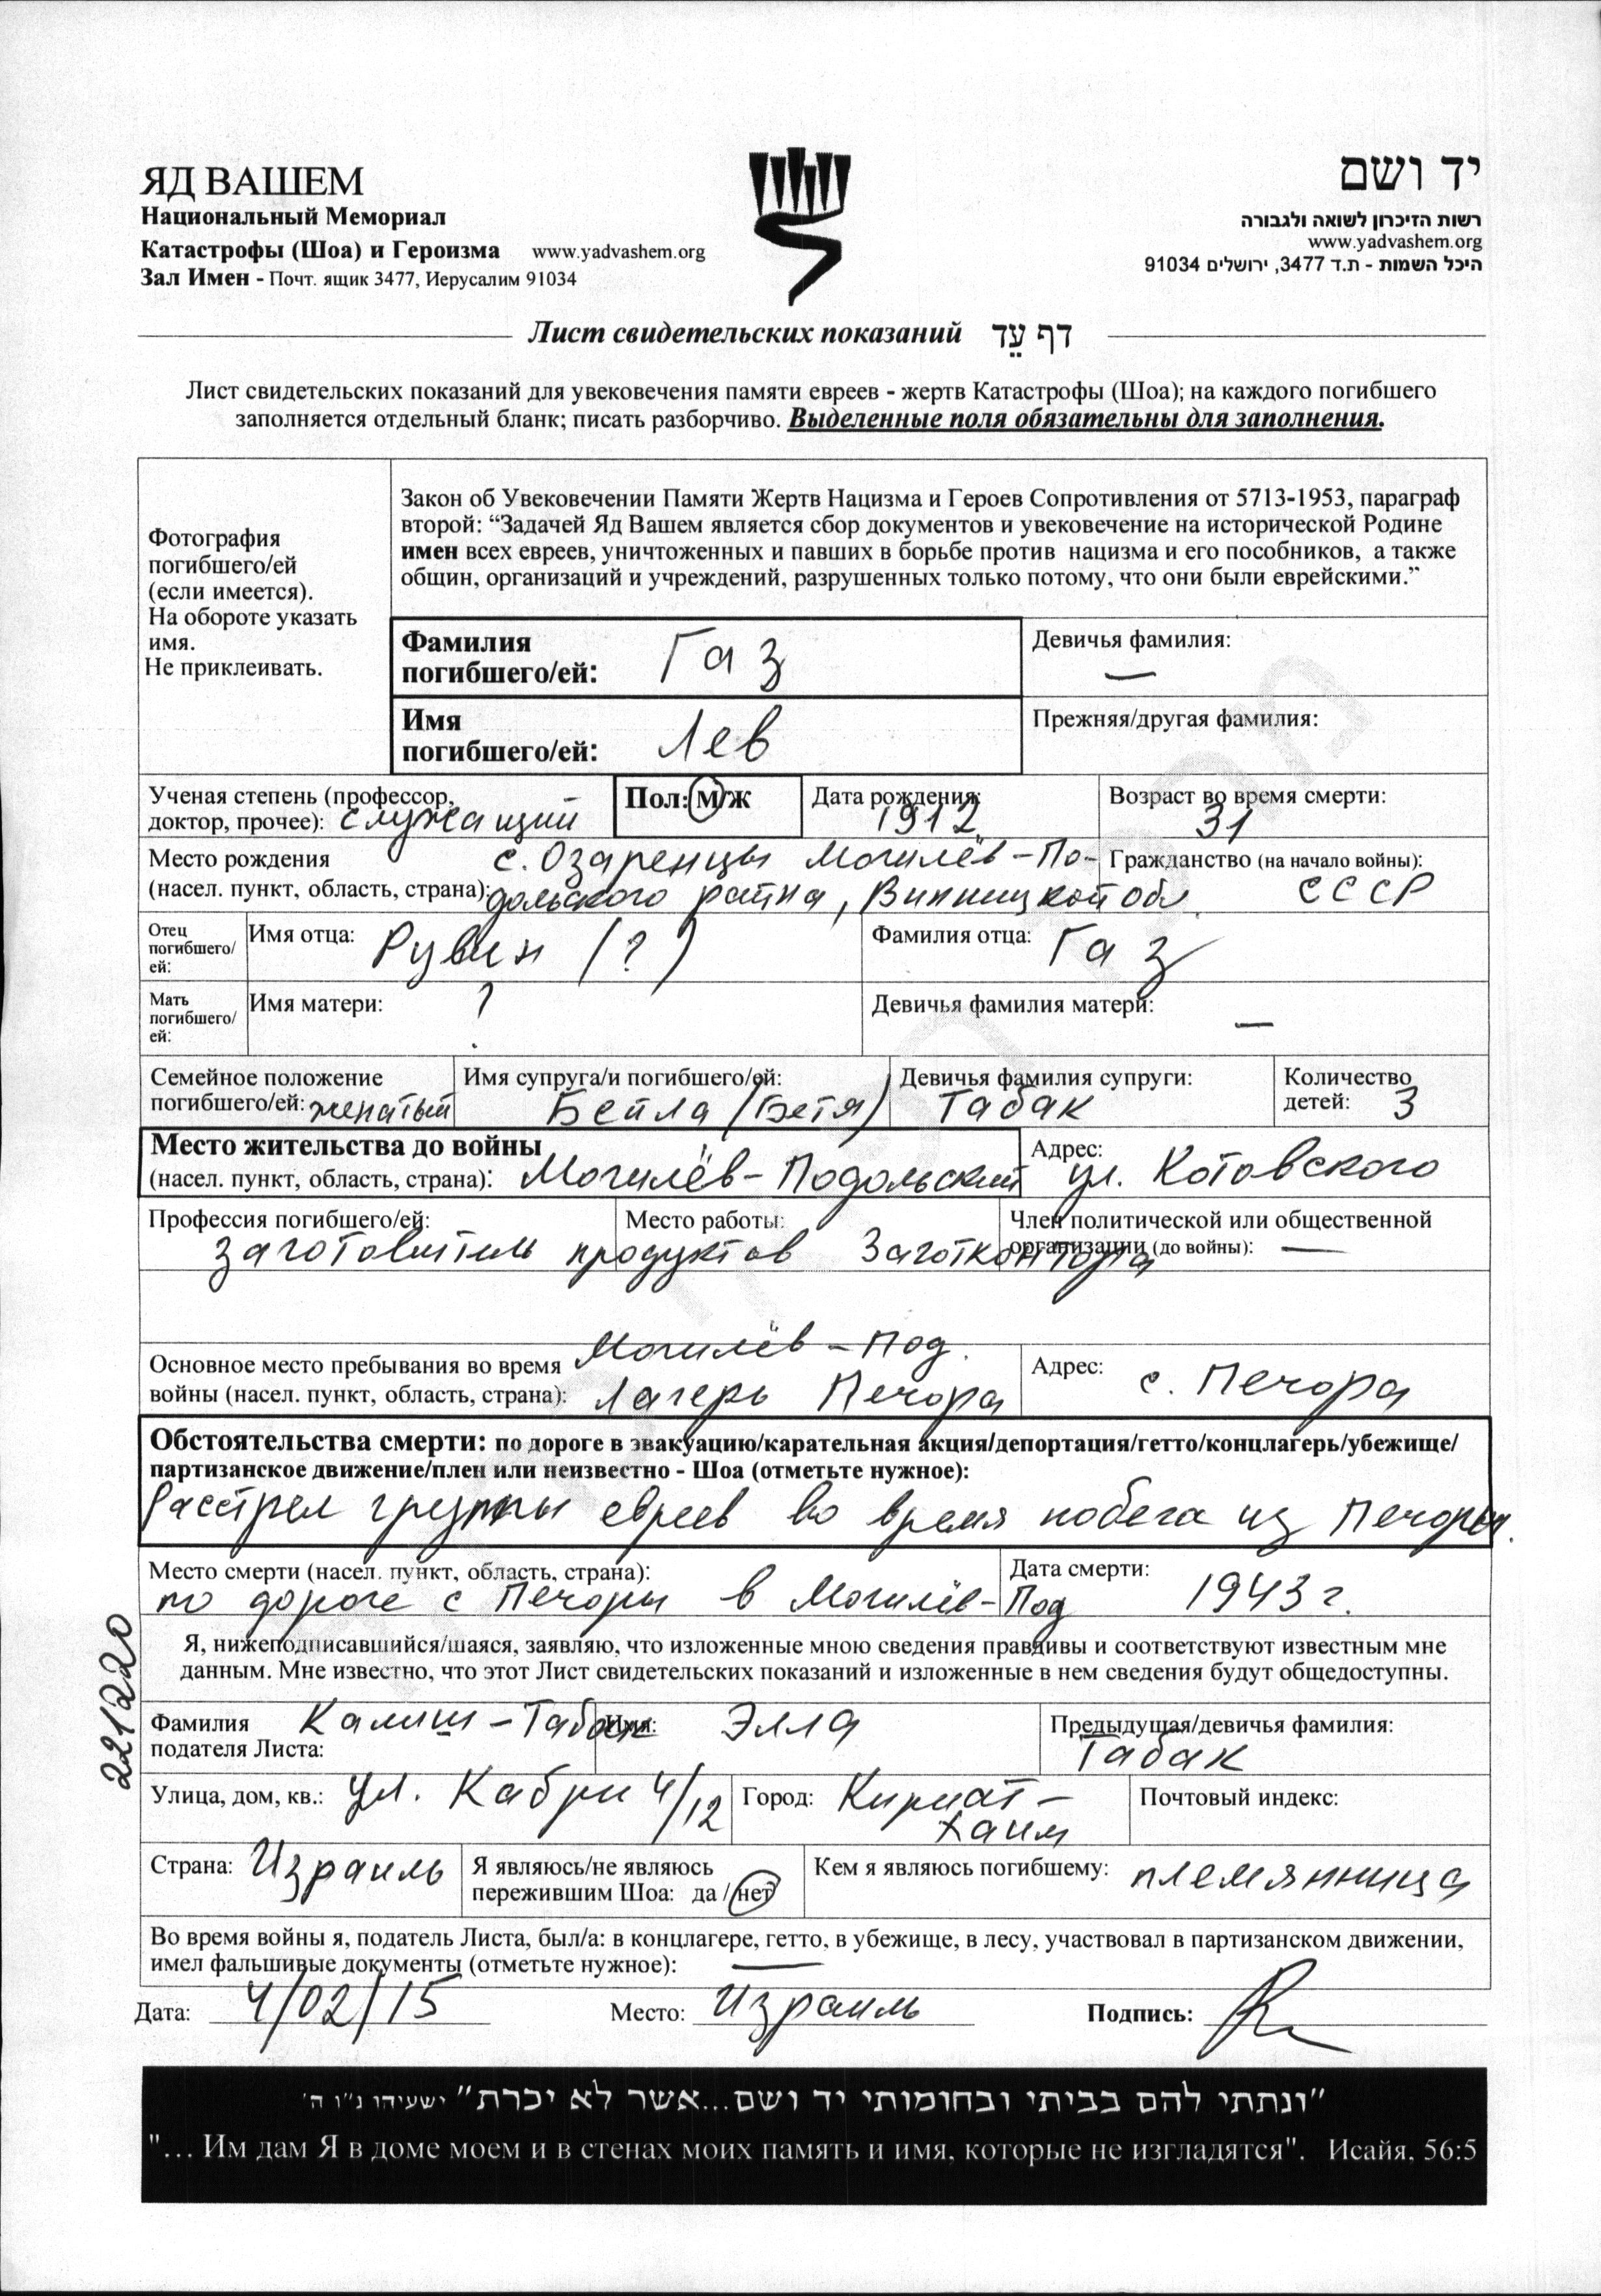 ЯД ВАШЕМ
Национальный Мемориал
Катастрофы (Шоа) и Героизма www.yadvashem.org
Зал Имен - Почт. ящик 3477, Иерусалим 91034
יד ושם
רשות הזיכרון לשואה ולגבורה
www.yadvashem.org
היכל השמות - ת.ד 3477, ירושלים 91034
Лист свидетельских показаний דף עֵד
Лист свидетельских показаний для увековечения памяти евреев - жертв Катастрофы (Шоа); на каждого погибшего
заполняется отдельный бланк; писать разборчиво. Выделенные поля обязательны для заполнения.
Фотография
погибшего/ей
(если имеется).
На обороте указать
имя.
Не приклеивать.
Закон об Увековечении Памяти Жертв Нацизма и Героев Сопротивления от 5713-1953, параграф
второй: “Задачей Яд Вашем является сбор документов и увековечение на исторической Родине
имен всех евреев, уничтоженных и павших в борьбе против нацизма и его пособников, а также
общин, организаций и учреждений, разрушенных только потому, что они были еврейскими.”
Фамилия
погибшего/ей: Газ
Девичья фамилия:
—
Имя
погибшего/ей: Лев
Прежняя/другая фамилия:
Ученая степень (профессор,
доктор, прочее): служащий
Пол: М/Ж
Дата рождения:
1912
Возраст во время смерти:
31
Место рождения с. Озаренцы Могилёв-По-
(насел. пункт, область, страна): дольского района, Винницкой обл.
Гражданство (на начало войны):
СССР
Отец
погибшего/
ей:
Имя отца: Рувин (?)
Фамилия отца: Газ
Мать
погибшего/
ей:
Имя матери: ?
Девичья фамилия матери: —
Семейное положение
погибшего/ей: женатый
Имя супруга/и погибшего/ей:
Бейла (Бетя)
Девичья фамилия супруги:
Табак
Количество
детей: 3
Место жительства до войны
(насел. пункт, область, страна): Могилёв-Подольский
Адрес:
ул. Котовского
Профессия погибшего/ей:
заготовитель продуктов
Место работы:
Заготконтора
Член политической или общественной
организации (до войны): —
Могилёв-Под.
Основное место пребывания во время
войны (насел. пункт, область, страна): Лагерь Печора
Адрес: с. Печора
Обстоятельства смерти: по дороге в эвакуацию/карательная акция/депортация/гетто/концлагерь/убежище/
партизанское движение/плен или неизвестно - Шоа (отметьте нужное):
Расстрел группы евреев во время побега из Печоры.
Место смерти (насел. пункт, область, страна):
по дороге с Печоры в Могилёв-Под
Дата смерти:
1943 г.
Я, нижеподписавшийся/шаяся, заявляю, что изложенные мною сведения правдивы и соответствуют известным мне
данным. Мне известно, что этот Лист свидетельских показаний и изложенные в нем сведения будут общедоступны.
221220
Фамилия
подателя Листа: Калиш-Табак
Имя: Элла
Предыдущая/девичья фамилия:
Табак
Улица, дом, кв.: ул. Кабри 4/12
Город: Кириат-
Хаим
Почтовый индекс:
Страна: Израиль
Я являюсь/не являюсь
пережившим Шоа: да / нет
Кем я являюсь погибшему: племянница
Во время войны я, податель Листа, был/а: в концлагере, гетто, в убежище, в лесу, участвовал в партизанском движении,
имел фальшивые документы (отметьте нужное): —
Дата: 4/02/15
Место: Израиль
Подпись:
"ונתתי להם בביתי ובחומותי יד ושם...אשר לא יכרת" ישעיהו נ"ו ה'
"... Им дам Я в доме моем и в стенах моих память и имя, которые не изгладятся". Исайя, 56:5